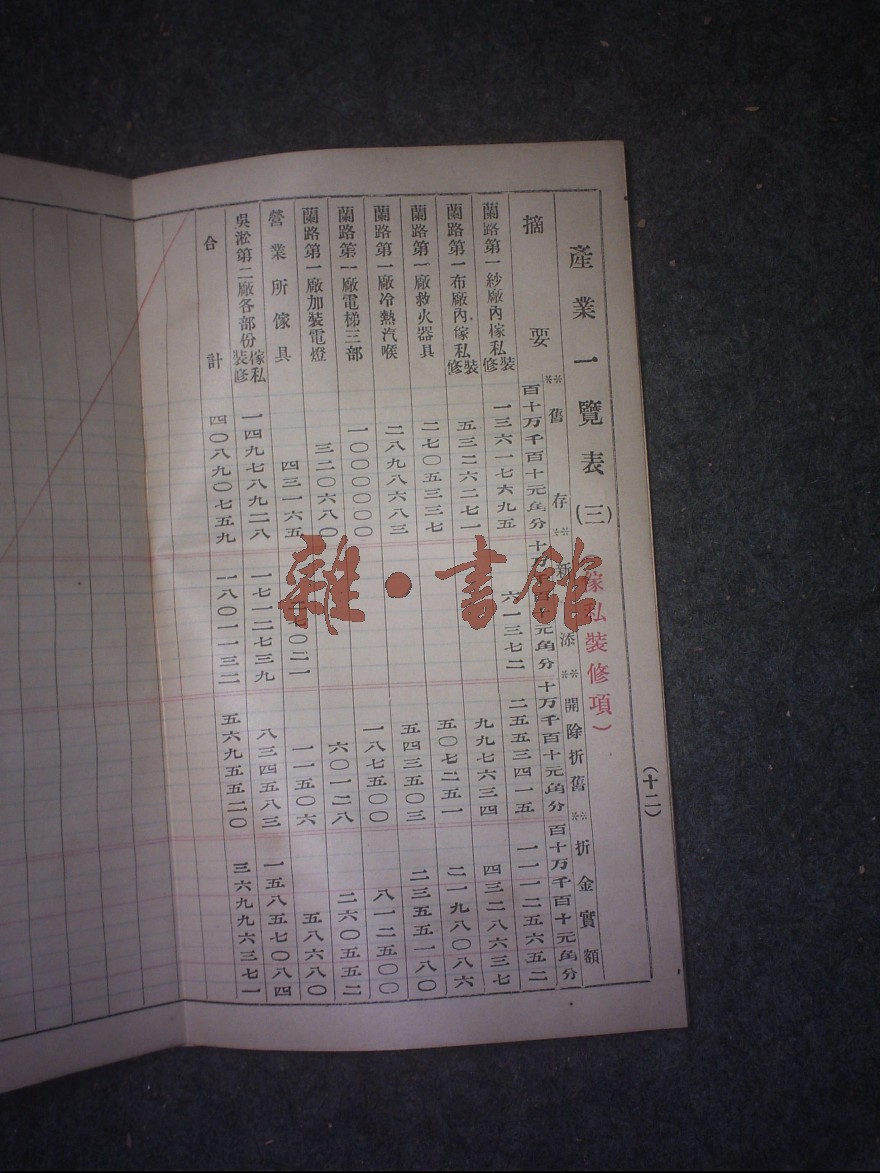 (十二)
產業一覽表(三)(傢私裝修項)
摘要 ※舊存※新添※開除折舊※折金實額
百十万千百十元角分 十万千百十元角分 十万千百十元角分 百十万千百十元角分
蘭路第一紗廠內傢私裝修 一三六一七六九五 六一三七二 二五五三四一五 一一一二五六五二
蘭路第一布廠內傢私裝修 五三二六二七一 九九七六三四 四三二八六三七
蘭路第一廠救火器具 二七〇五三三七 五〇七二五一 二一九八〇八六
蘭路第一廠冷熱汽喉 二八九八六八三 五四三五〇三 二三五五一八〇
蘭路第一廠電梯三部 一〇〇〇〇〇〇 一八七五〇〇 八一二五〇〇
蘭路第一廠加裝電燈 三二〇六八〇 六〇一二八 二六〇五五二
營業所傢具 四三一六五 二七〇二一 一一五〇六 五八六八〇
吳淞第二廠各部份傢私裝修 一四九七八九二八 一七一二七三九 八三四五八三 一五八五七〇八四
合計 四〇八九〇七五九 一八〇一一三二 五六九五五二〇 三六九九六三七一
雜·書館